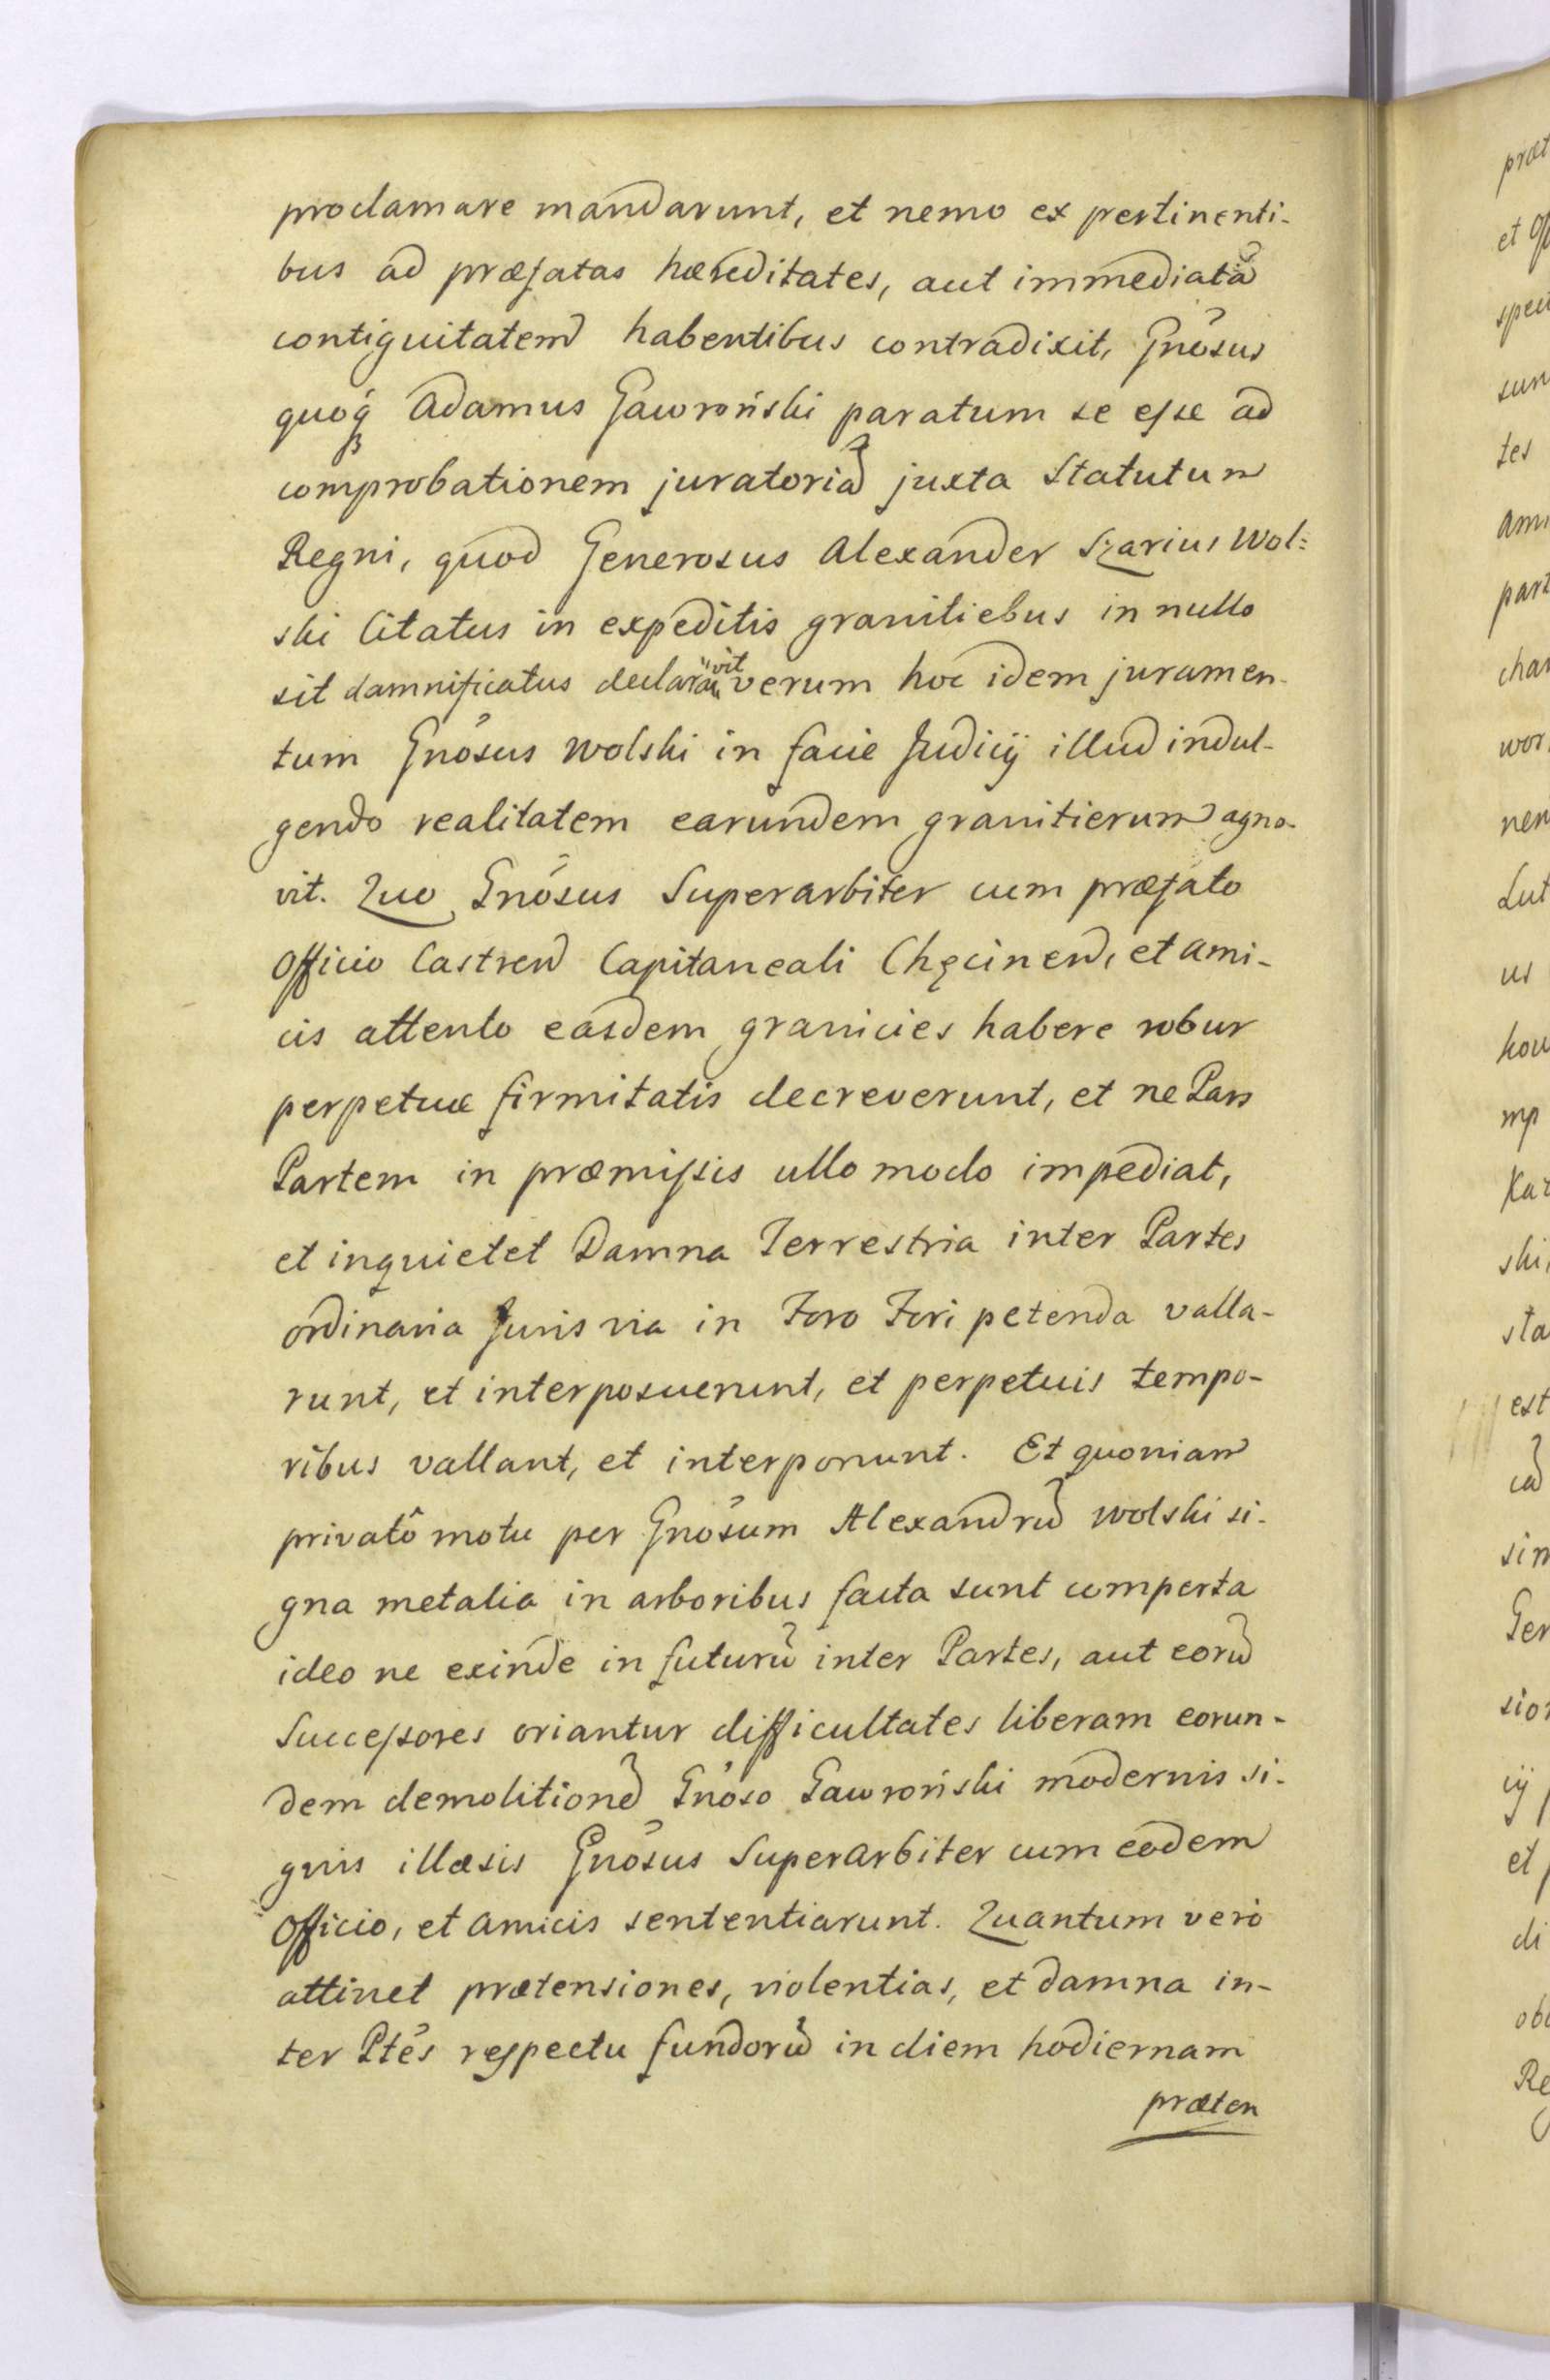 proclamare mandarunt, et nemo ex pertinenti-
bus ad præfatas hæreditates, aut immediatã
contiguitatem habentibus contradixit, Gnõsus
quoq́ Adamus Gawroński paratum se esse ad
comprobationem juratoriã juxta Statutum
Regni, quod Generosus Alexander Szarius Wol:
ski Citatus in expeditis granitiebus in nullo
sit damnificatus declaravit verum hoc idem juramen-
tum Gnõsus Wolski in facie Judicij illud indul-
gendo realitatem earundem granitierum agno-
vit. Quo Gnõsus Superarbiter cum præfato
Officio Castren Capitaneali Chęcinen, et ami-
cis attento easdem granicies habere robur
perpetuæ firmitatis decreverunt, et ne Pars
Partem in præmissis ullo modo impediat,
et inquietet Damna Terrestria inter Partes
ordinaria Juris via in Foro Fori petenda valla-
runt, et interposuerunt, et perpetuis tempo-
ribus vallant, et interponunt. Et quoniam
privatô motu per Gnõsum Alexandrũ Wolski si-
gna metalia in arboribus facta sunt comperta
ideo ne exinde in futurũ inter Partes, aut eorũ
Successores oriantur difficultates liberam eorun-
dem demolitionẽ Gnõso Gawroński modernis si-
gnis illæsis Gnõsus Superarbiter cum eodem
Officio, et amicis sententiarunt. Quantum verò
attinet prætensiones, violentias, et damna in-
ter Ptẽs respectu fundorũ in diem hodiernam
præten